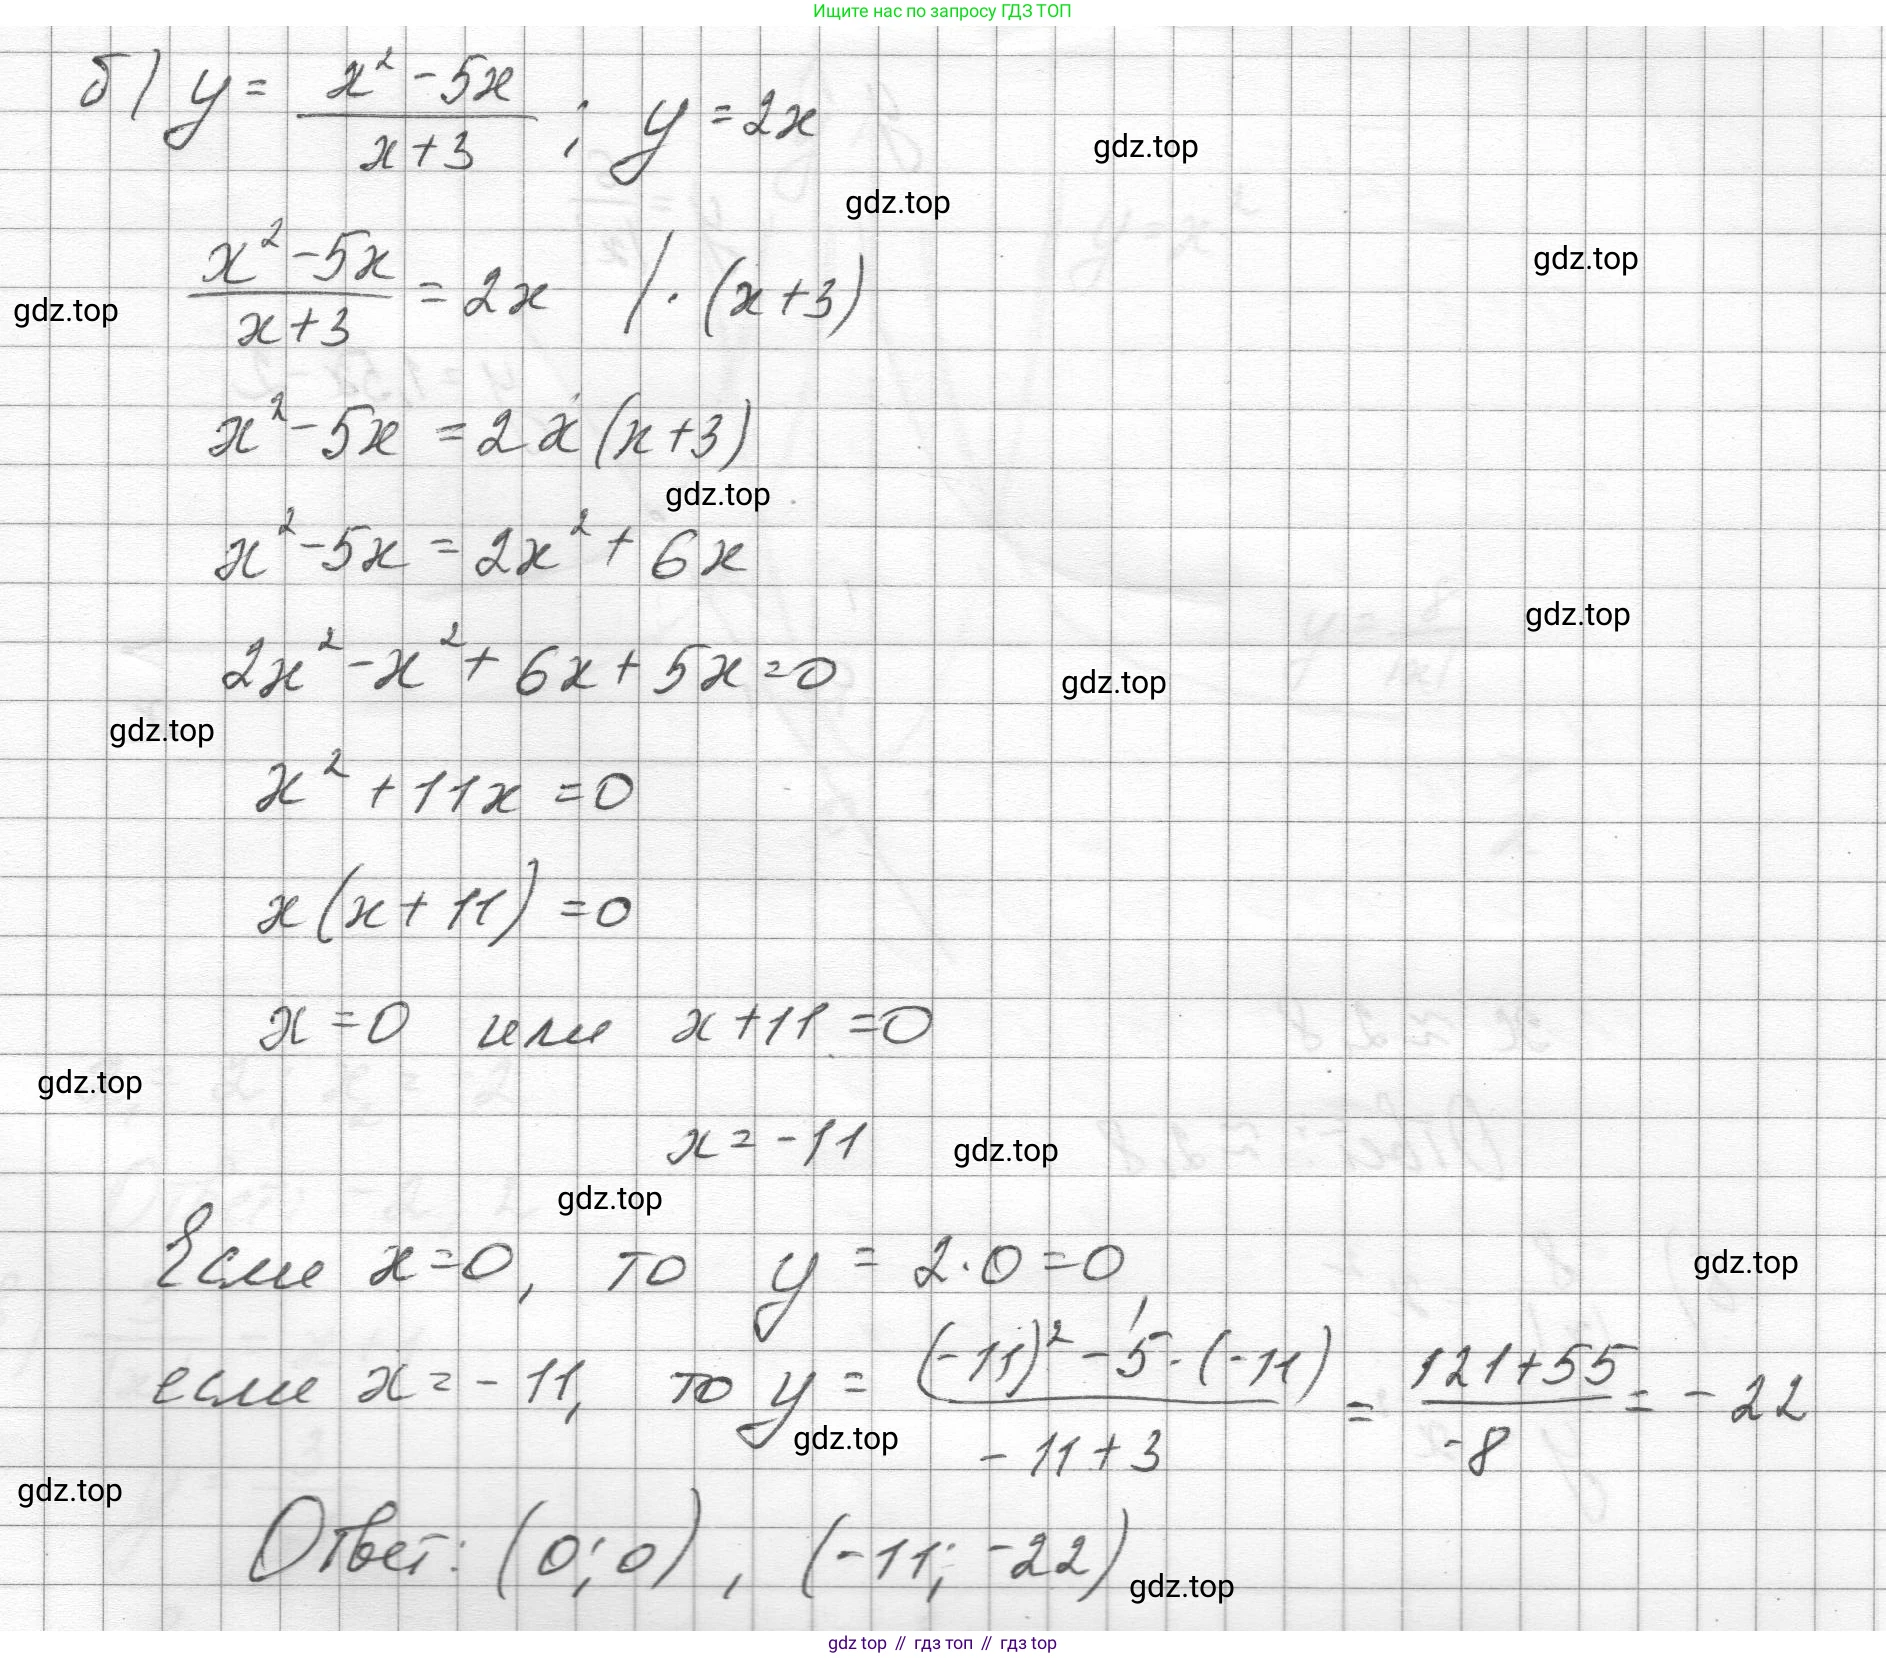 Ищите нас по запросу ГДЗ ТОП
б) y = (x² - 5x)/(x + 3) ; y = 2x
gdz.top
gdz.top
gdz.top
(x² - 5x)/(x + 3) = 2x | · (x + 3)
gdz.top
x² - 5x = 2x(x + 3)
gdz.top
x² - 5x = 2x² + 6x
gdz.top
2x² - x² + 6x + 5x = 0
gdz.top
gdz.top
x² + 11x = 0
x(x + 11) = 0
x = 0 или x + 11 = 0
gdz.top
x = -11
gdz.top
gdz.top
Если x = 0, то y = 2 · 0 = 0,
gdz.top
если x = -11, то y = ((-11)² - 5 · (-11))/(-11 + 3) = (121 + 55)/(-8) = -22
gdz.top
gdz.top
Ответ: (0; 0), (-11; -22)
gdz.top
gdz top // гдз топ // гдз top